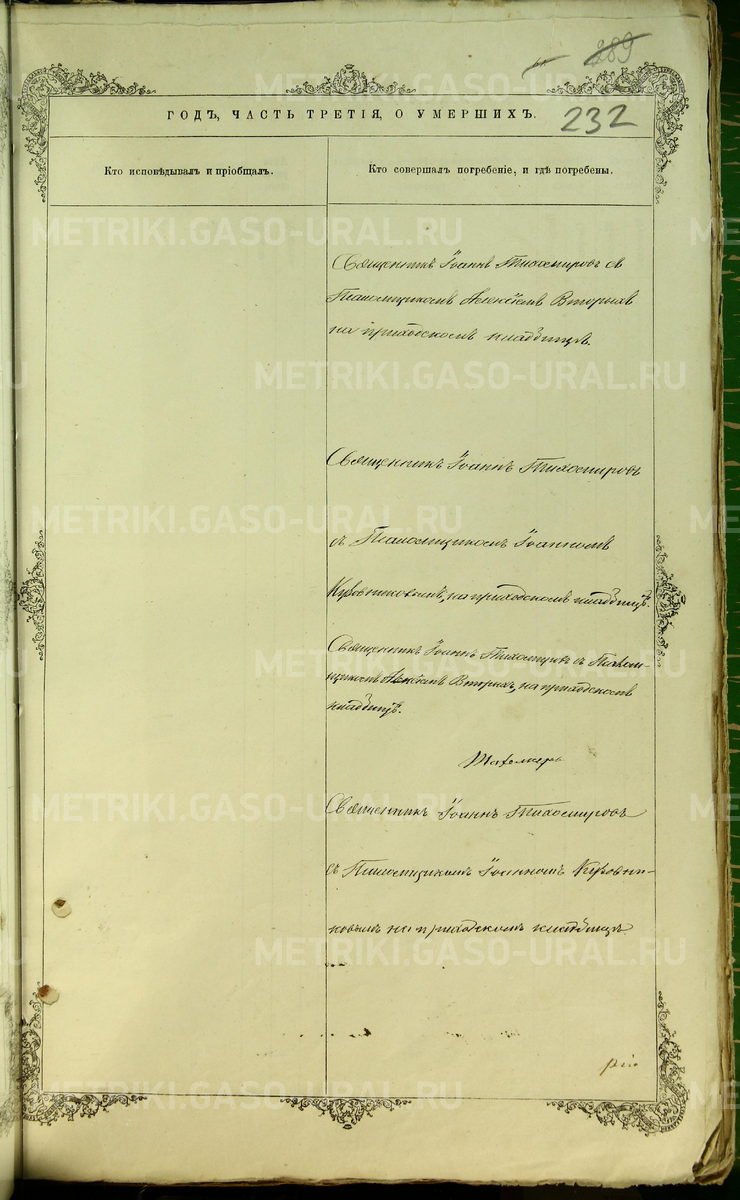 289
232
ГОДЪ, ЧАСТЬ ТРЕТІЯ, О УМЕРШИХЪ.
Кто исповѣдывалъ и пріобщалъ.
Кто совершалъ погребеніе, и гдѣ погребены.
Священникъ Іоаннъ Тихомировъ съ
Псаломщикомъ Алексіемъ Вторыхъ
на приходскомъ кладбищѣ.
Священникъ Іоаннъ Тихомировъ
съ Псаломщикомъ Іоанномъ
на приходскомъ кладбищѣ.
Священникъ Іоаннъ Тихомировъ съ Псалом-
щикомъ Алексіемъ Вторыхъ, на приходскомъ
кладбищѣ.
Священникъ Іоаннъ Тихомировъ
съ Псаломщикомъ Іоанномъ
на приходскомъ кладбищѣ
METRIKI.GASO-URAL.RU